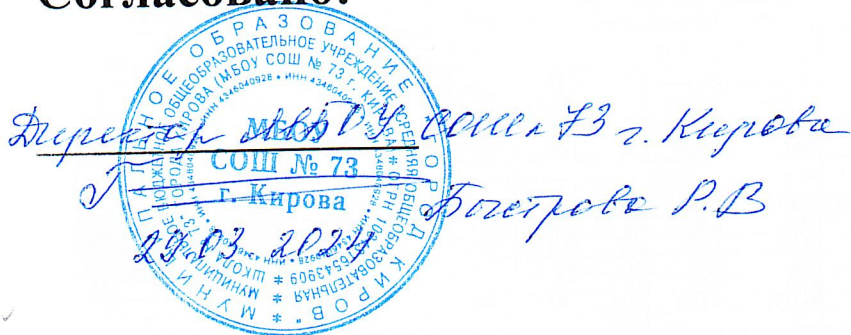 Согласовано:
Директор МБОУ СОШ № 73 г. Кирова
Быстрова Р.В
29.03 2024
МУНИЦИПАЛЬНОЕ ОБРАЗОВАНИЕ "ГОРОД КИРОВ"
МУНИЦИПАЛЬНОЕ БЮДЖЕТНОЕ ОБЩЕОБРАЗОВАТЕЛЬНОЕ УЧРЕЖДЕНИЕ "СРЕДНЯЯ ОБЩЕОБРАЗОВАТЕЛЬНАЯ ШКОЛА
ГОРОДА КИРОВА (МБОУ СОШ № 73 г. КИРОВА)
ИНН 4346040928
МБОУ
СОШ № 73
г. Кирова